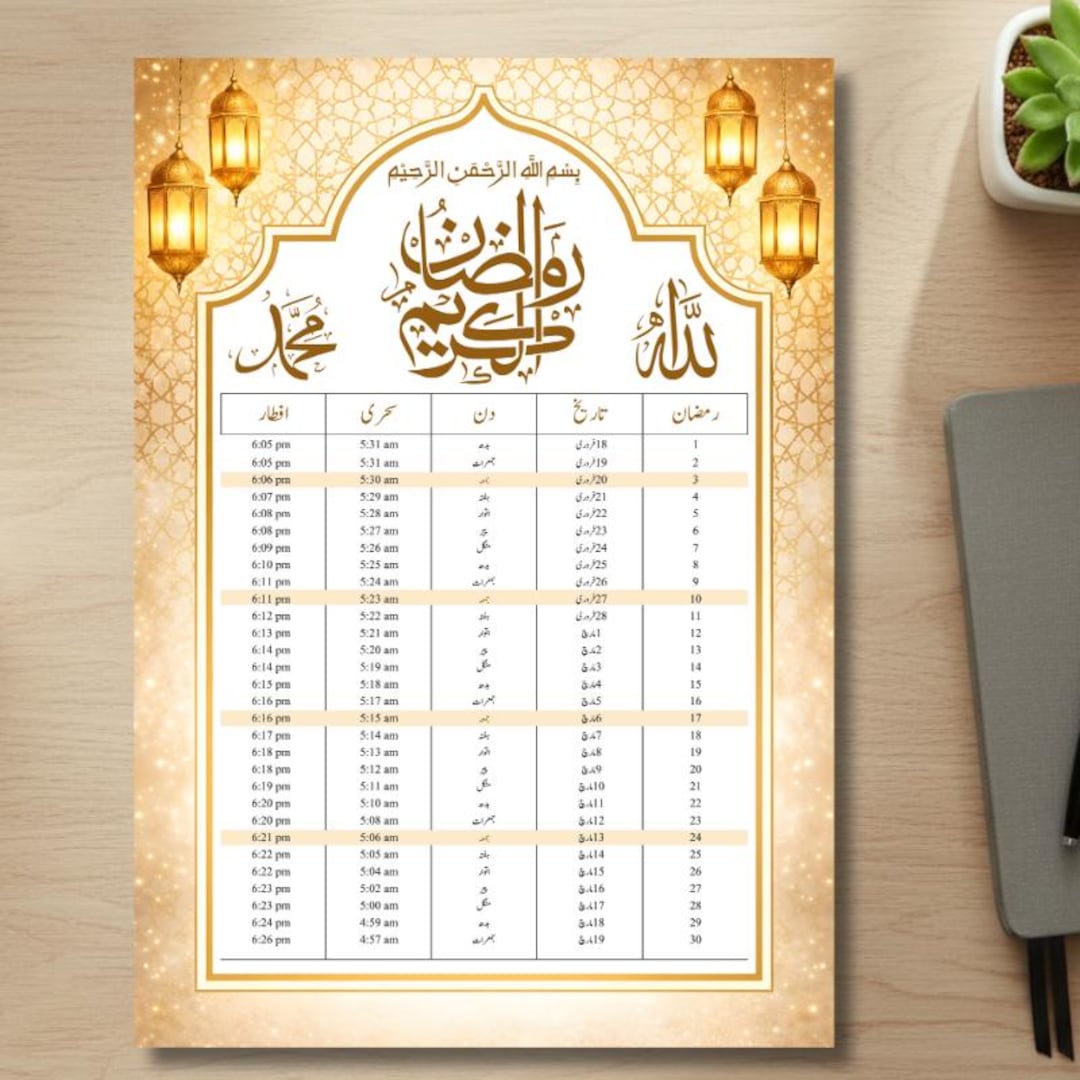 بِسْمِ اللَّهِ الرَّحْمَٰنِ الرَّحِيمِ
رمضان الكريم
اللّٰه
مُحَمَّد
رمضان تاریخ دن سحری افطار
1 18فروری بدھ 5:31 am 6:05 pm
2 19فروری جمعرات 5:31 am 6:05 pm
3 20فروری جمعہ 5:30 am 6:06 pm
4 21فروری ہفتہ 5:29 am 6:07 pm
5 22فروری اتوار 5:28 am 6:08 pm
6 23فروری پیر 5:27 am 6:08 pm
7 24فروری منگل 5:26 am 6:09 pm
8 25فروری بدھ 5:25 am 6:10 pm
9 26فروری جمعرات 5:24 am 6:11 pm
10 27فروری جمعہ 5:23 am 6:11 pm
11 28فروری ہفتہ 5:22 am 6:12 pm
12 1مارچ اتوار 5:21 am 6:13 pm
13 2مارچ پیر 5:20 am 6:14 pm
14 3مارچ منگل 5:19 am 6:14 pm
15 4مارچ بدھ 5:18 am 6:15 pm
16 5مارچ جمعرات 5:17 am 6:16 pm
17 6مارچ جمعہ 5:15 am 6:16 pm
18 7مارچ ہفتہ 5:14 am 6:17 pm
19 8مارچ اتوار 5:13 am 6:18 pm
20 9مارچ پیر 5:12 am 6:18 pm
21 10مارچ منگل 5:11 am 6:19 pm
22 11مارچ بدھ 5:10 am 6:20 pm
23 12مارچ جمعرات 5:08 am 6:20 pm
24 13مارچ جمعہ 5:06 am 6:21 pm
25 14مارچ ہفتہ 5:05 am 6:22 pm
26 15مارچ اتوار 5:04 am 6:22 pm
27 16مارچ پیر 5:02 am 6:23 pm
28 17مارچ منگل 5:00 am 6:23 pm
29 18مارچ بدھ 4:59 am 6:24 pm
30 19مارچ جمعرات 4:57 am 6:26 pm